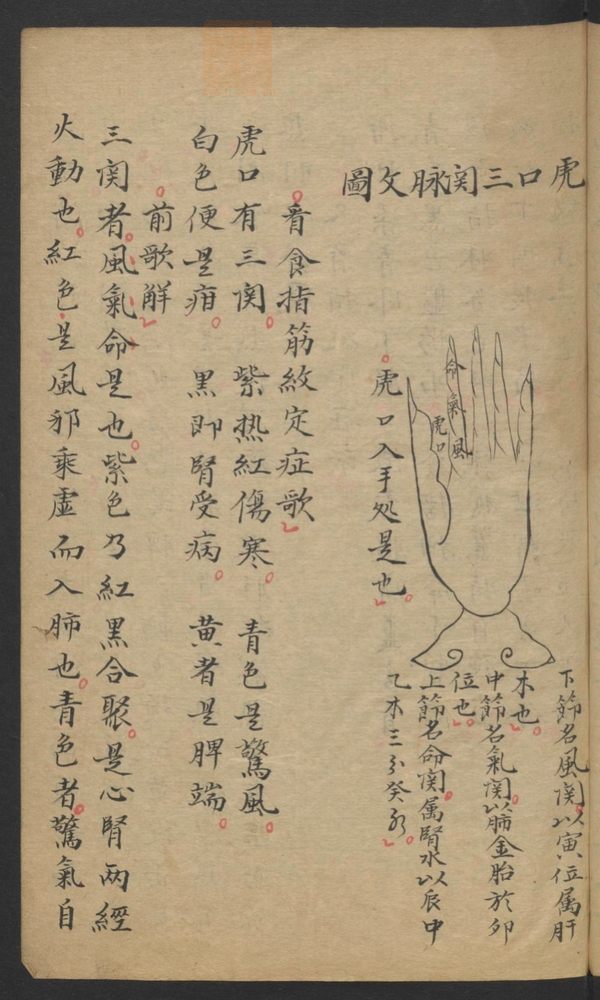 虎口三関脉文圖
命氣風
虎口
下節名風関以寅位属肝
木也
中節名氣関以肺金胎於卯
位也
上節名命関属腎水以辰中
乙木三分癸水
虎口入手処是也
看食指筋紋定症歌
虎口有三関 紫热紅傷寒 青色是驚風
白色便是疳 黒即腎受病 黄者是脾端
前歌解
三関者風氣命是也紫色乃紅黒合聚是心腎两經
火動也紅色是風邪乘虚而入肺也青色者驚氣自